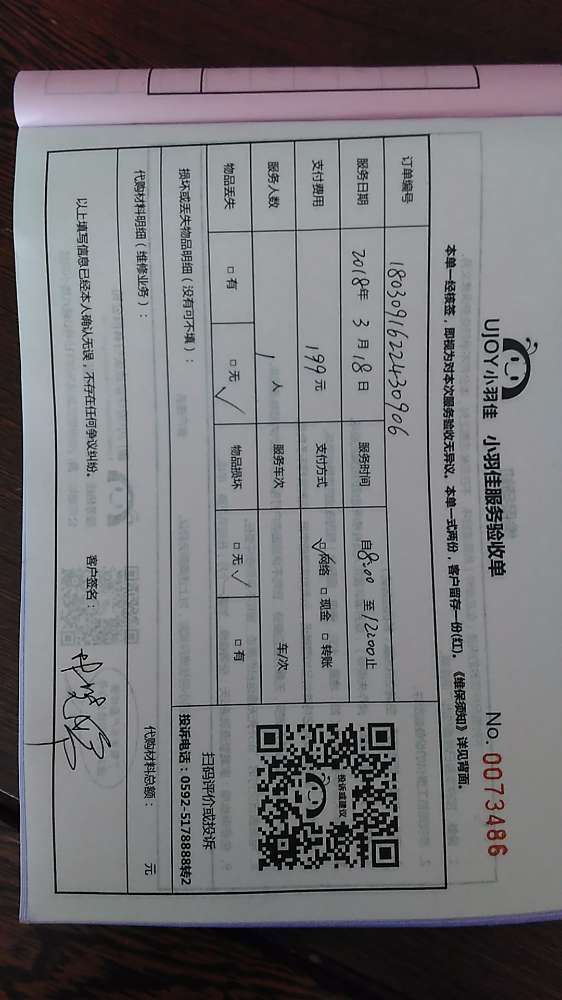 UJOY小羽佳 小羽佳服务验收单 No. 0073486
本单一经核签，即视为对本次服务验收无异议。本单一式两份，客户留存一份(红)。《维保须知》详见背面。
订单编号 1803091622430906
服务日期 2018年 3 月 18 日 服务时间 自8:00 至 12:00止
支付费用 199 元 支付方式 ☑网络 □现金 □转账
服务人数 1 人 服务车次 车/次
物品丢失 □有 □无 ✓ 物品损坏 □无 ✓ □有
投诉或建议
扫码评价或投诉
投诉电话：0592-5178888转2
损坏或丢失物品明细（没有可不填）：
代购材料明细（维修业务）： 代购材料总额： 元
以上填写信息已经本人确认无误，不存在任何争议纠纷。 客户签名：